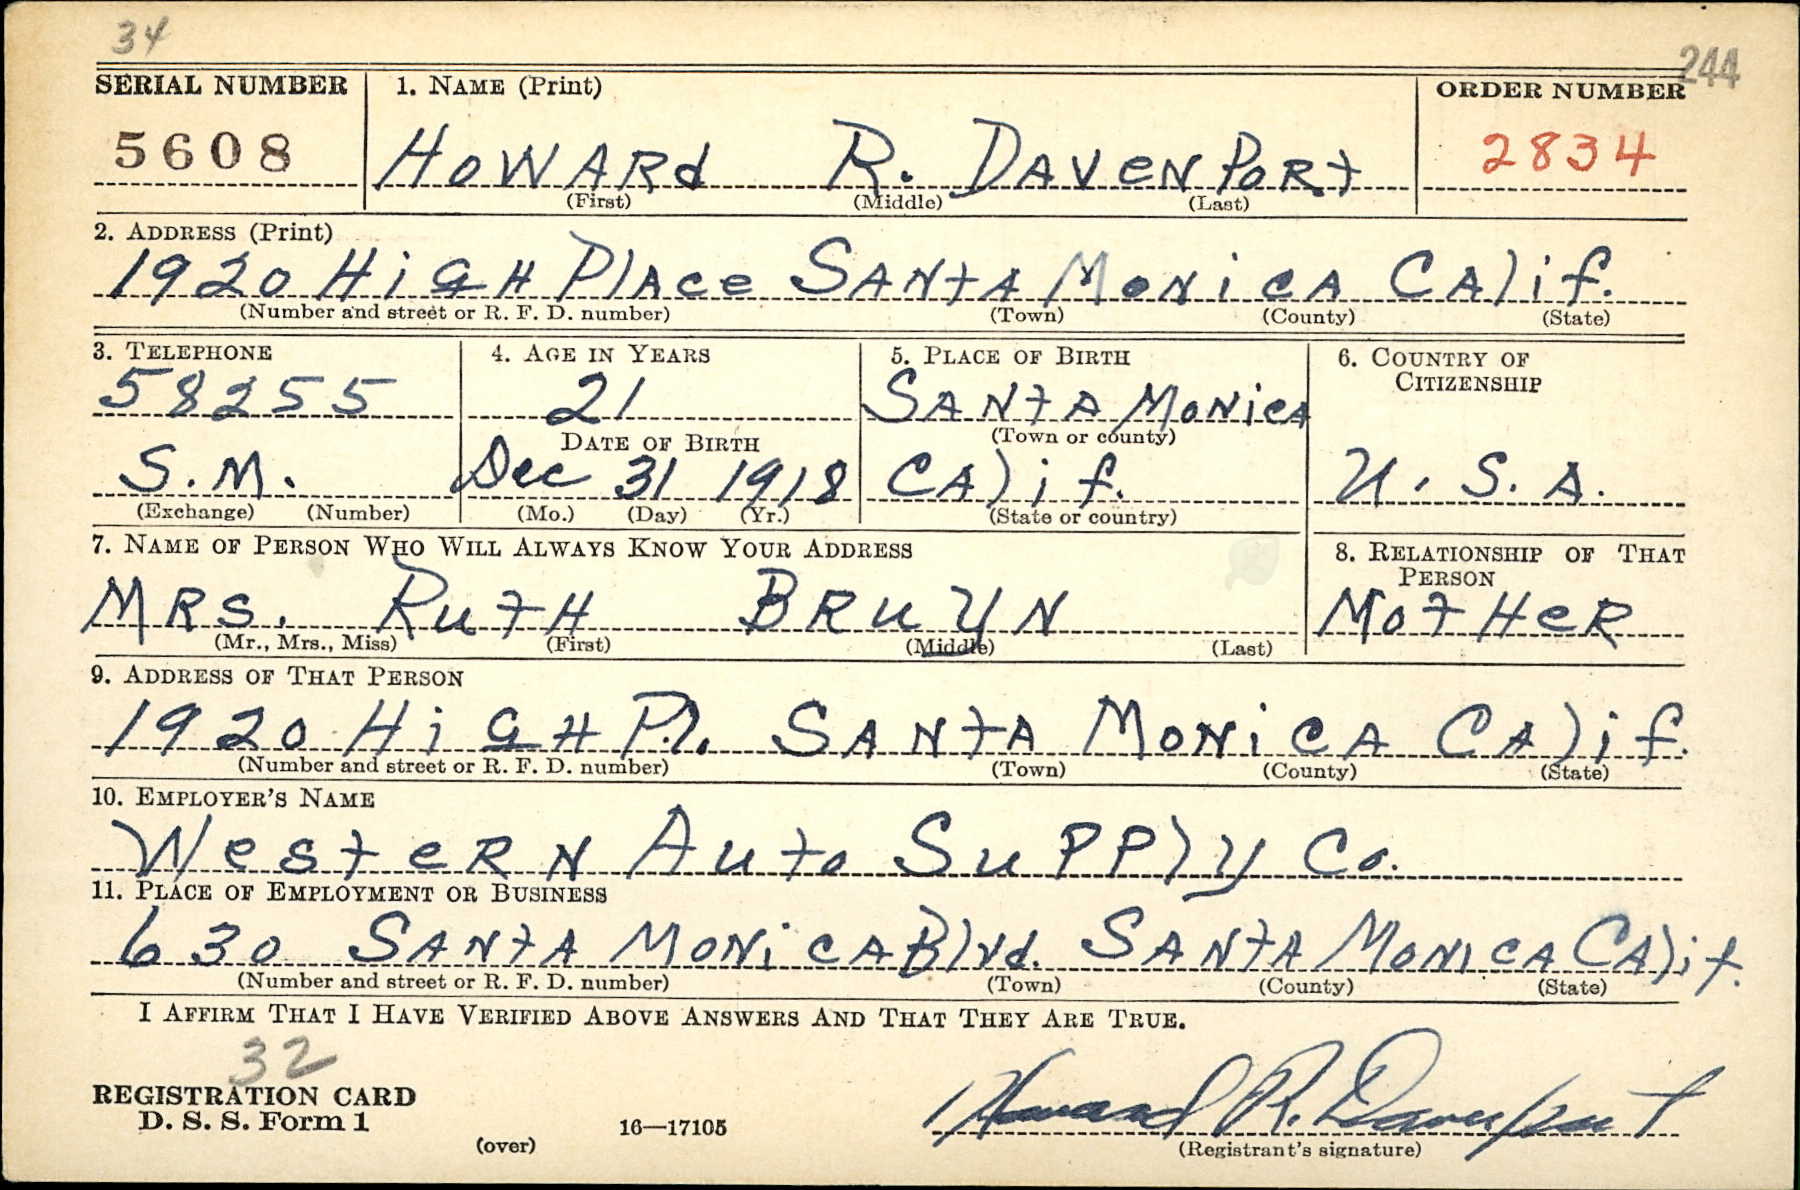 34
244
SERIAL NUMBER 1. NAME (Print) ORDER NUMBER
5608 HOWARd R. DAVeNPORt 2834
(First) (Middle) (Last)
2. ADDRESS (Print)
1920 HiGH PlAce SANtA MoNicA CAlif.
(Number and street or R. F. D. number) (Town) (County) (State)
3. TELEPHONE 4. AGE IN YEARS 5. PLACE OF BIRTH 6. COUNTRY OF CITIZENSHIP
58255 21 SANtA MoNicA
(Town or county)
DATE OF BIRTH
S.M. Dec 31 1918 CAlif. U.S.A.
(Exchange) (Number) (Mo.) (Day) (Yr.) (State or country)
7. NAME OF PERSON WHO WILL ALWAYS KNOW YOUR ADDRESS 8. RELATIONSHIP OF THAT PERSON
MRS. RutH BRuYN MotHeR
(Mr., Mrs., Miss) (First) (Middle) (Last)
9. ADDRESS OF THAT PERSON
1920 HiGH Pl. SANtA MONicA CAlif.
(Number and street or R. F. D. number) (Town) (County) (State)
10. EMPLOYER'S NAME
WesteRN Auto SuPPly Co.
11. PLACE OF EMPLOYMENT OR BUSINESS
630 SANtA MONicA Blvd. SANtA MONicA CAlif.
(Number and street or R. F. D. number) (Town) (County) (State)
I AFFIRM THAT I HAVE VERIFIED ABOVE ANSWERS AND THAT THEY ARE TRUE.
32
REGISTRATION CARD
D. S. S. Form 1 16—17105 Howard R. Davenport
(over) (Registrant's signature)